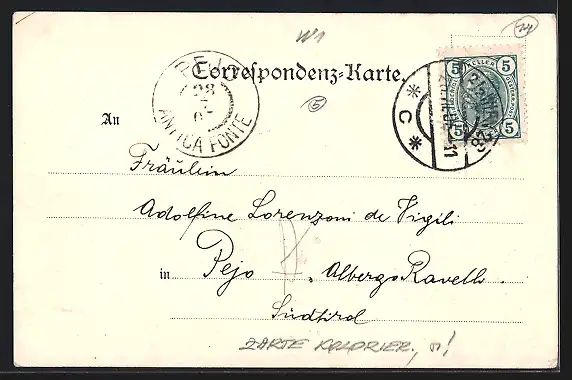 W1
Correspondenz-Karte.
PEJO
28
ANTICA FONTE
5 5
5 5
* C *
An
Fräulein
Adolfine Lorenzoni de Vigili
in Pejo, Albergo Ravelli
Südtirol
ZARTE KOLORIER., n!